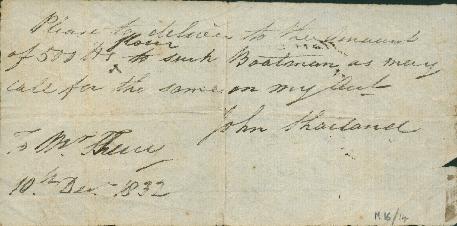 Please to deliver to the amount
of 500 lbs flour to such Boatman as may
call for the same on my Acct
John
To Mr
10th Decr 1832
M.16/14